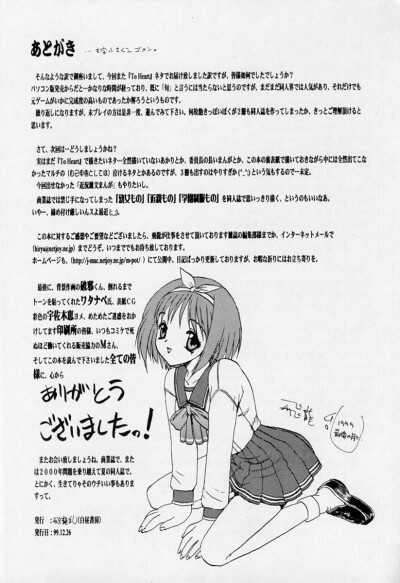 あとがき
そんなような訳で御座いまして、今回また『To Heart』ネタでお届け致しました訳ですが、皆様如何でしたでしょうか？
パソコン版発売からだと一かなりな時間が経っており、既に「旬」と言うには当たらないと思うのですが、まだまだ同人界では人気があり、それだけでも
元ゲームがいかに完成度の高いものであったか解ろうというものです。
繰り返しになりますが、未プレイの方は是非一度、遊んでみて下さい。何故飽きっぽいぼくが２冊も同人誌を作ってしまったか、きっとご理解頂けると
思います。
さて、次回は一どうしましょうかね？
実はまだ『To Heart』で描きたいネタ一全然描いていないあかりとか、委員長の長いまんがとか、この本の面表紙で描いておきながら中には全然出てこな
かったマルチの（もご中着ごしは）泣けるネタとかあるのですが、３冊も出すのはやりすぎかな（^_^）という気もするので一未定。
今回出せなかった「近況猥文まんが」もやりたいし、
商業誌では禁じ手になってしまった「幼女もの」「折檻もの」「学園制服もの」を同人誌で思いっきり描く、というのもいいなあ。
いやー、締め付け厳しいんスよ最近(;_;)。
この本に対するご感想やご要望などございましたら、飛龍が仕事をさせて頂いております雑誌の編集部様までか、インターネットメールで
(hiryu@netjoy.ne.jp)までどうぞ。いつまででもお待ち致しております。
ホームページも、(http://j-mac.netjoy.ne.jp/m-pot/ )にて公開中。日記ばっかり更新しておりますが、お暇な折りにはお立ち寄りを。
最後に、背景作画の破暮くん、倒れるまで
トーンを貼ってくれたワタナベ氏、表紙CG
彩色の宇佐木恵ヨメ、めためたご迷惑をおか
けしてます印刷所の皆様、いつもコミケで死
ぬほど働いてくれる販売協力のMさん、
そしてこの本を読んで下さいました全ての皆
様に、心から
ありがとう
ございましたっ！
またお会い致しましょうね。商業誌で、また
は2000年問題を乗り越えて夏の同人誌で。
とにかく、生きてりゃそのウチいい事もありま
すって。
発行：
(白昼書房)
発行日：99.12.26
飛龍
1999